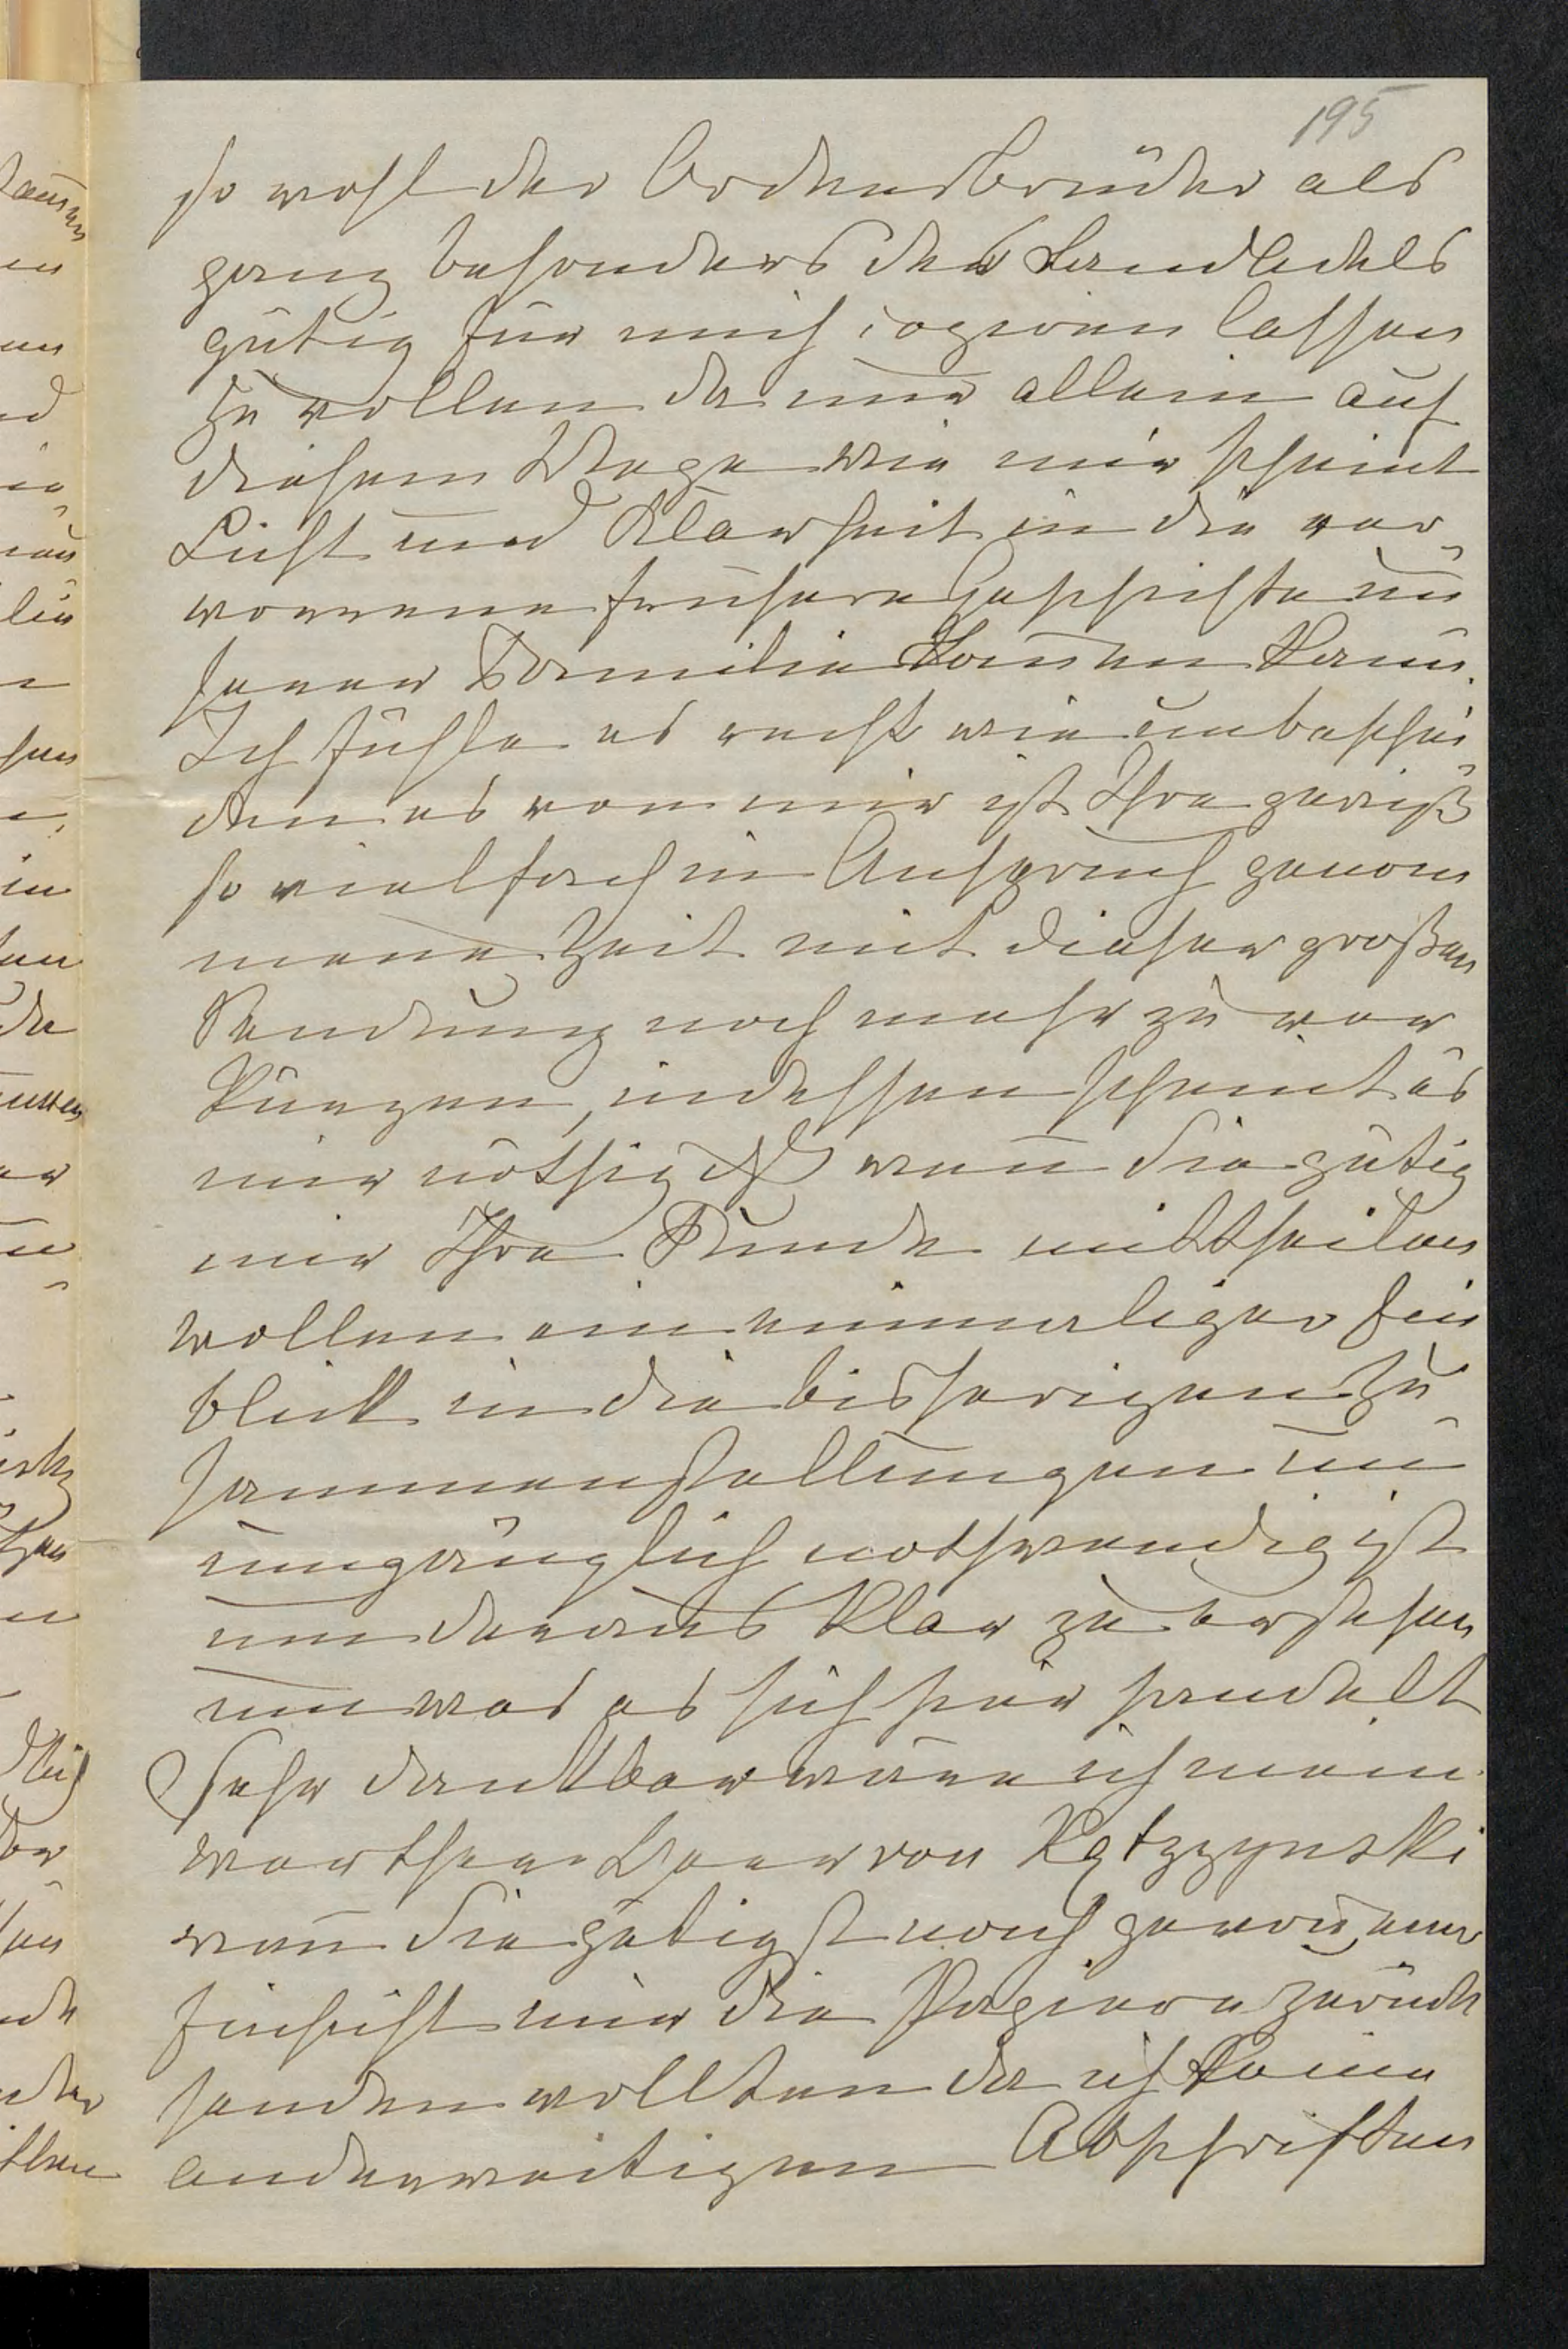 195
so wohl der Ordensbrüder als
ganz besonders des Landadels
gütig für mich copieren lassen
zu wollen da nur allein auf
diesem Wege wie mir scheint
Licht und Klarheit in die ver-
worrene frühere Geschichte
jener Familie kommen kann.
Ich fühle es recht wie unbeschei-
den es von mir ist Ihre gewiß
so vielfach in Anspruch genom
mene Zeit mit dieser großen
Sendung noch mehr zu ver
kürzen, indessen scheint es
mir nöthig daß wenn Sie gütig
mir Ihre Funde mittheilen
wollen ein einmaliger Ein
blick in die bisherigen Zu-
sammenstellungen un
umgänglich nothwendig ist
um daraus klar zu ersehen
um was es sich hier handelt
Sehr dankbar wäre ich mein
werther Herr von Kętrzyński
wenn Sie gütigst nach genom̅ener
Einsicht mir die Papiere zurück
senden wollten da ich keine
anderweitigen Abschriften